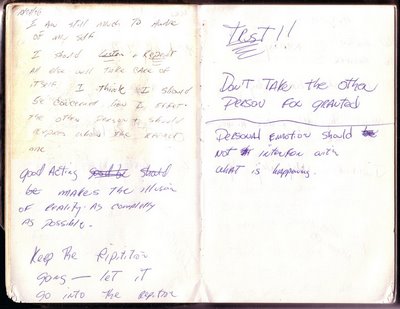 I Am still much TO Aware
OF my self
I should Listen + Repeat
All else will take care of
itself I think I should
be concerned how I effect
the other person + should
express when the
one
good Acting should be should
be makes the illusion
OF reality As completly
As possible.
Keep the Ripitition
going — let it
go into the
TRUST!!
DON'T TAKE the other
PERSON FOR GRANTED
PERSONAL Emotion should be
not interfer with
what is happening.